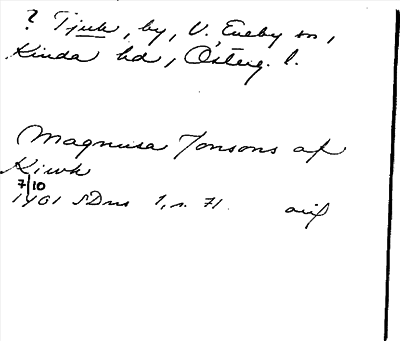 ? Tjuk, by, V. Eneby sn,
Kinda hd, Österg. l.
Magnusa Jonsons af
Kiwk
7/10
1401 SDns 1, s. 71. avs